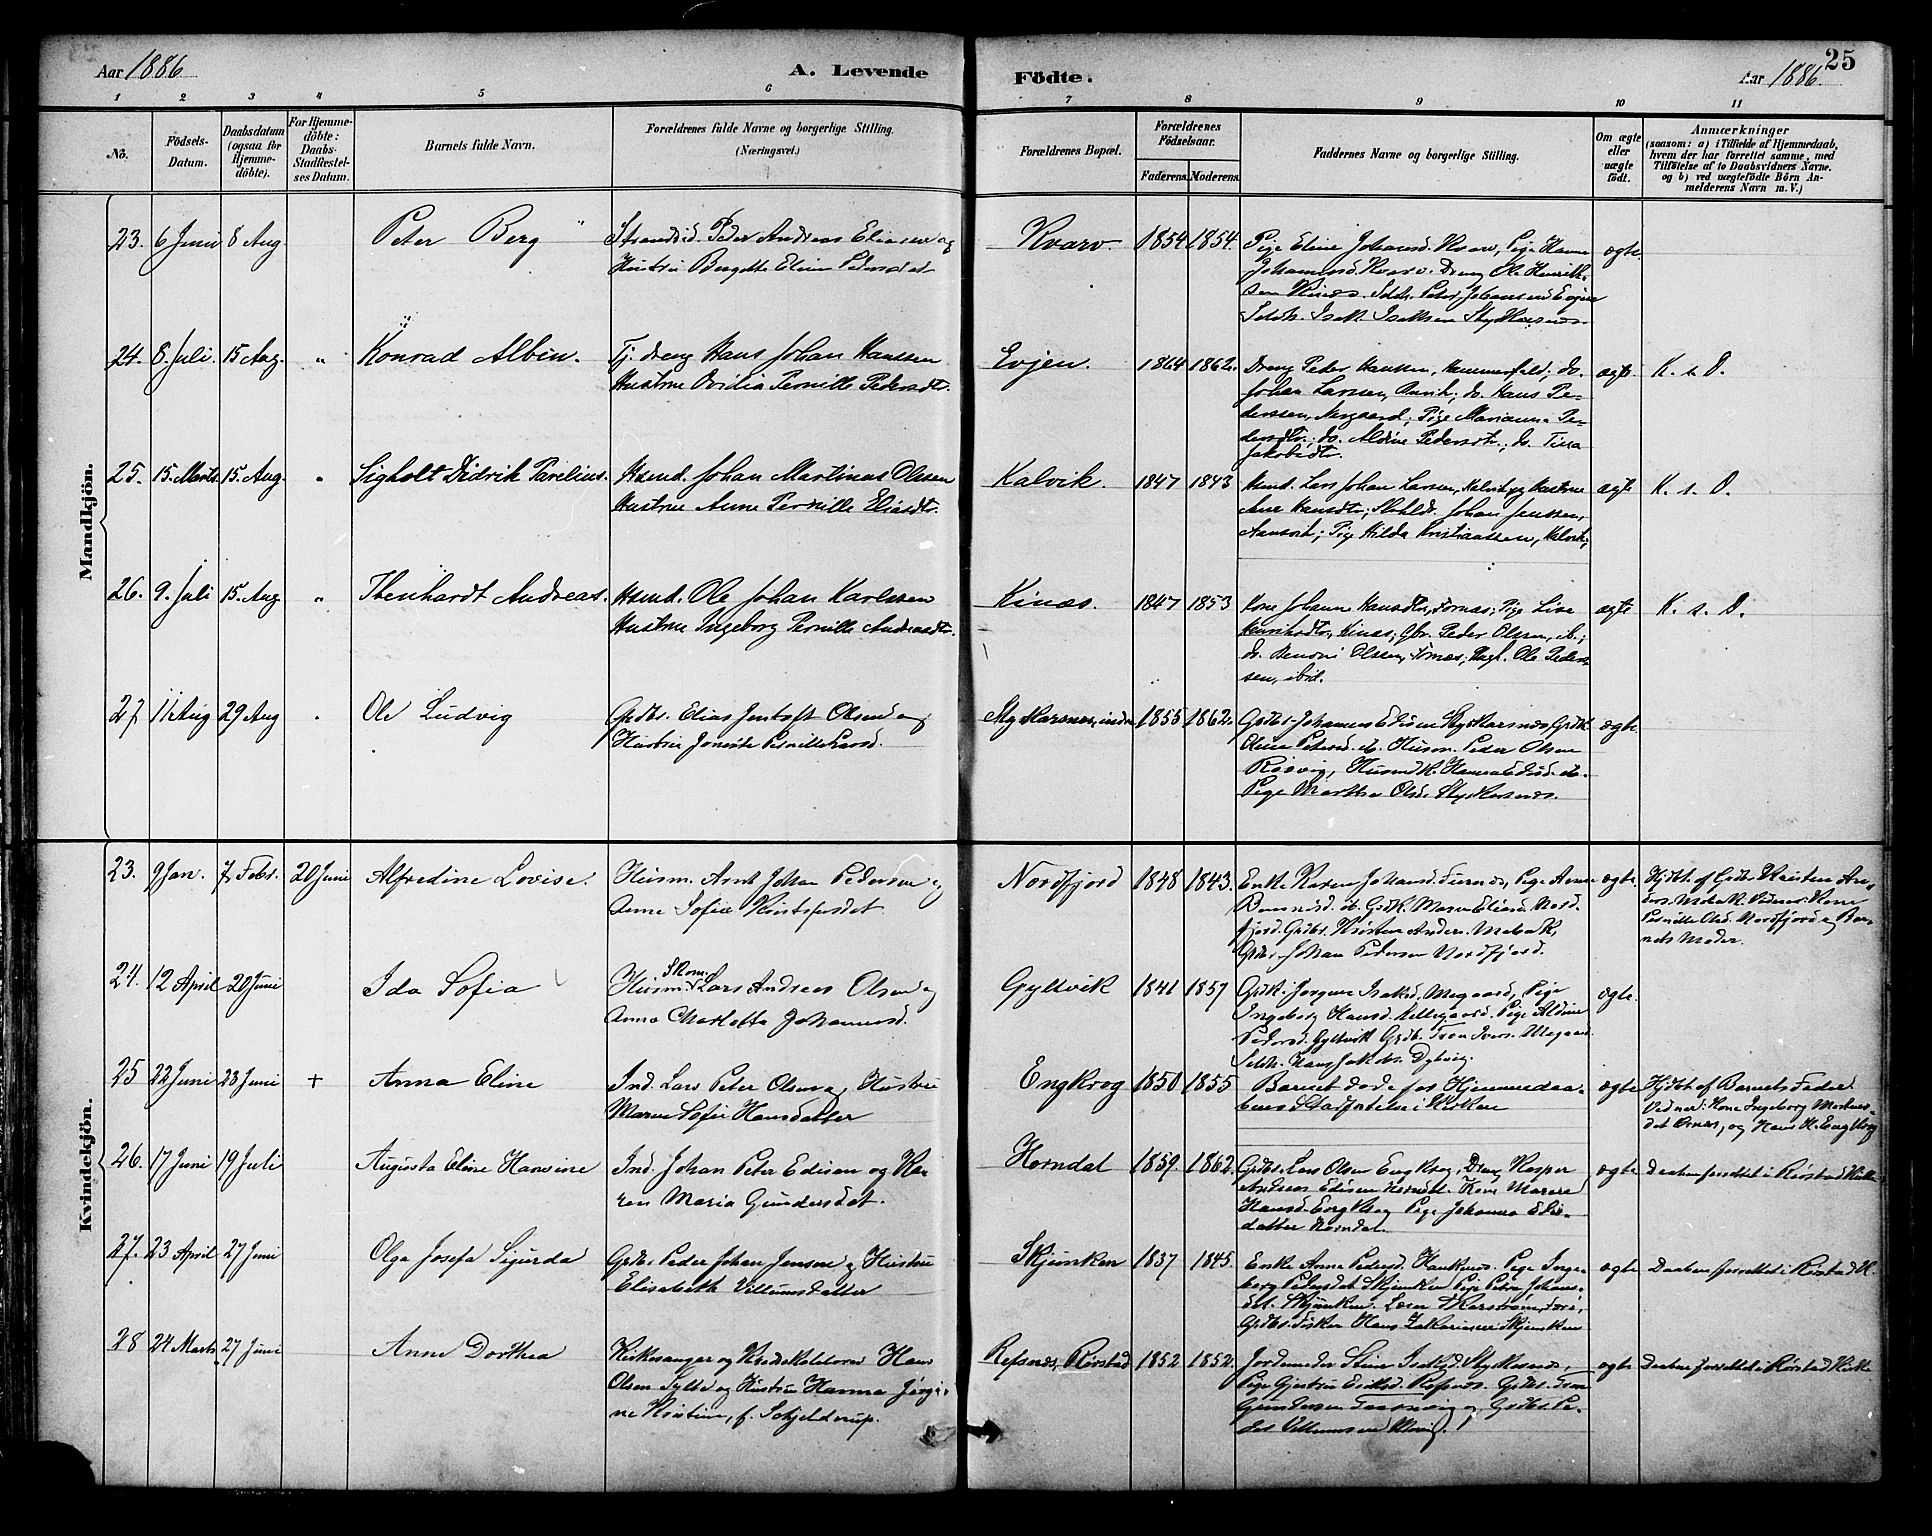 Aar 1886
A. Levende
Födte.
Aar 1886.
25
1 2 3 4 5 6 7 8 9 10 11
No.
Födsels-
Datum.
Daabsdatum
(ogsaa for
Hjemme-
döbte).
For Hjemme-
döbte:
Daabs-
Stadfæstel-
ses Datum.
Barnets fulde Navn.
Forældrenes fulde Navne og borgerlige Stilling.
(Næringsvei.)
Forældrenes Bopæl.
Forældrenes
Födselsaar.
Faderens. Moderens.
Faddernes Navne og borgerlige Stilling.
Om ægte
eller
uægte
födt.
Anmærkninger
(saasom: a) i Tilfælde af Hjemmedaab,
hvem der har forrettet samme, med
Tilföielse af to Daabsvidners Navne.
og b) ved uægtefödte Börn An-
melderens Navn m. V.)
Mandkjön.
23. 6 Juni 8 Aug. Peter Berg
Strandsid. Peder Andreas Eliasen og
Hustru Bergitte Elina Pedersdat
Kvarv 1854 1854.
Pige Eline Johansd. Kvarv, Pige Hanna
Johannesd. Kvarv. Dreng Ole Henrik-
sen Kinæs. Peter Johansen Evjen
Isak Isaksen Styrkersnes
ægte
24. 8. Juli. 15 Aug. " Konrad Albin.
Tj. dreng Hans Johan Hanssen
Hustrue Ovidia Pernille Pedersdtr.
Evjen. 1864 1862.
Dreng Peder Hanssen, Hammerfeld; do.
Johan Larssen, do. Hans Pe-
derssen, Nergaard; Pige Mariann Pe-
dersdtr.; do. Aldine Pedersdtr.; do. Tina
Jakobsdtr.
ægte K. s. D.
25. 15. Marts. 15. Aug. " Sigholt Didrik Parelius.
Hsmd. Johan Martinus Olssen
Hustrue Anne Pernille Eliasdtr.
Kalvik. 1847 1843
Hsmd. Lars Johan Larsen, Kalvik og Hustrue
Ane Hansdtr; Johan Jenssen,
Aansvt; Pige Hilda Kristiansen, Kalvik;
ægte K. s. D.
26. 9. Juli 15. Aug. " Thenhardt Andreas.
Hsmd. Ole Johan Karlssen
Hustrue Ingeborg Pernille Andreasdtr.
Kinæs. 1847 1853
Kone Johanna Hansdtr, Tørnæs; Pige Lise
Henriksdtr, Kinæs; Gbr. Peder Olssen, ib.;
do. Benoni Olssen, Tørnæs; Ungk. Ole Peder-
sen, ibid.
ægte K. s. D.
27. 11 Aug 29 Aug " Ole Ludvig
Grdbr. Elias Jentoft Olsen og
Hustru Jonette Pernille Larsd.
Styrkersnes, indre 1855 1862.
Grdbr. Johannes Edisen Styrkersnes, Grdk.
Eline Petersd. ib. Husm. Peder Olsen
Røsvig, Husmdk. Hanna Edisd. ib.
Pige Martha Olsd. Styrkersnes.
ægte
Kvindekjön.
23. 9 Jan. 7 Febr. 20 Juni Alfredine Lovise.
Husm. Arnt Johan Pedersen og
Anne Sofie Kristofersdat.
Nordfjord 1848 1843.
Enke Karen Johansd. Tiernes, Pige Anne
ib. Grdk. Maren Eliasd. Nord-
fjord. Grdbr. Kristen Anders. Mobæk,
Grdbr. Johan Pedersen Nordfjord.
ægte.
Hjdbt. af Grdbr. Kristen An-
ders. Mobæk. Vidner: Kone
Pernille Olsd. Nordfjord og Bar-
nets Moder.
24. 12 April 20 Juni Ida Sofia
Husm. Skom. Lars Andreas Olsen og
Anna Charlotta Johannesd.
Gyltvik 1841 1857
Grdk. Jørgine Isaksd. Megaard, Pige
Ingeborg Hansd. Pige Aldine
Pedersd. Gyltvik Grdbr. Tron Ivers. Megaard.
Hans Jakobs. Dybvig.
ægte.
25 22 Juni 23 Juni + Anna Eline
Ind. Lars Peter Olsen og Hustru
Maren Sofie Hansdatter
Engkrog 1850 1855
Barnet døde før Hjemmedaa-
bens Stadfæstelse i Kirken
ægte
Hjdbt. af Barnets Fader.
Vidner: Kone Ingeborg
og Hans H. Engkrog
26. 17 Juni 19 Juli Augusta Eline Hansine
Ind. Johan Peter Edisen og Ka-
ren Maria Gundersdat.
Horndal 1859. 1862.
Grdbr. Lars Olsen Engkrog, Dreng Kasper
Andreas Edisen Horndal. Kone Maren
Hansd. Engkrog Pige Johanna Edis-
datter Horndal.
ægte Daaben forrettet i Rørstad Kirke
27. 23 April 27 Juni Olga Josefa Sigurda
Grdbr. Peder Johan Jensen og Hustru
Elisabeth Villumsdatter
Skjunken 1837 1845.
Enke Anne Pedersd. Pige Inge-
borg Pedersdat. Skjunken Pige Petra Johans-
dat. Skjunken.
Grdbr. Fisker Hans Zakariassen Skjunken
ægte Daaben forrettet i Rørstad K.
28 24 Marts 27 Juni Anne Dorthea
Kirkesanger og Kredsskolelærer Hans
Olsen Sylte og Hustru Hanna Jørgi-
ne Kristine, f. Schjelderup.
Refsnes, Rørstad 1852 1852.
Jordemoder Stine Isaksd. Styrkersnes,
Pige Gjertru Eriksd. Refsnes. Grdbr. Tron
Gundersen og Grdbr. Pe-
der Villumsen
ægte Daaben forrettet i Rørstad Kirke